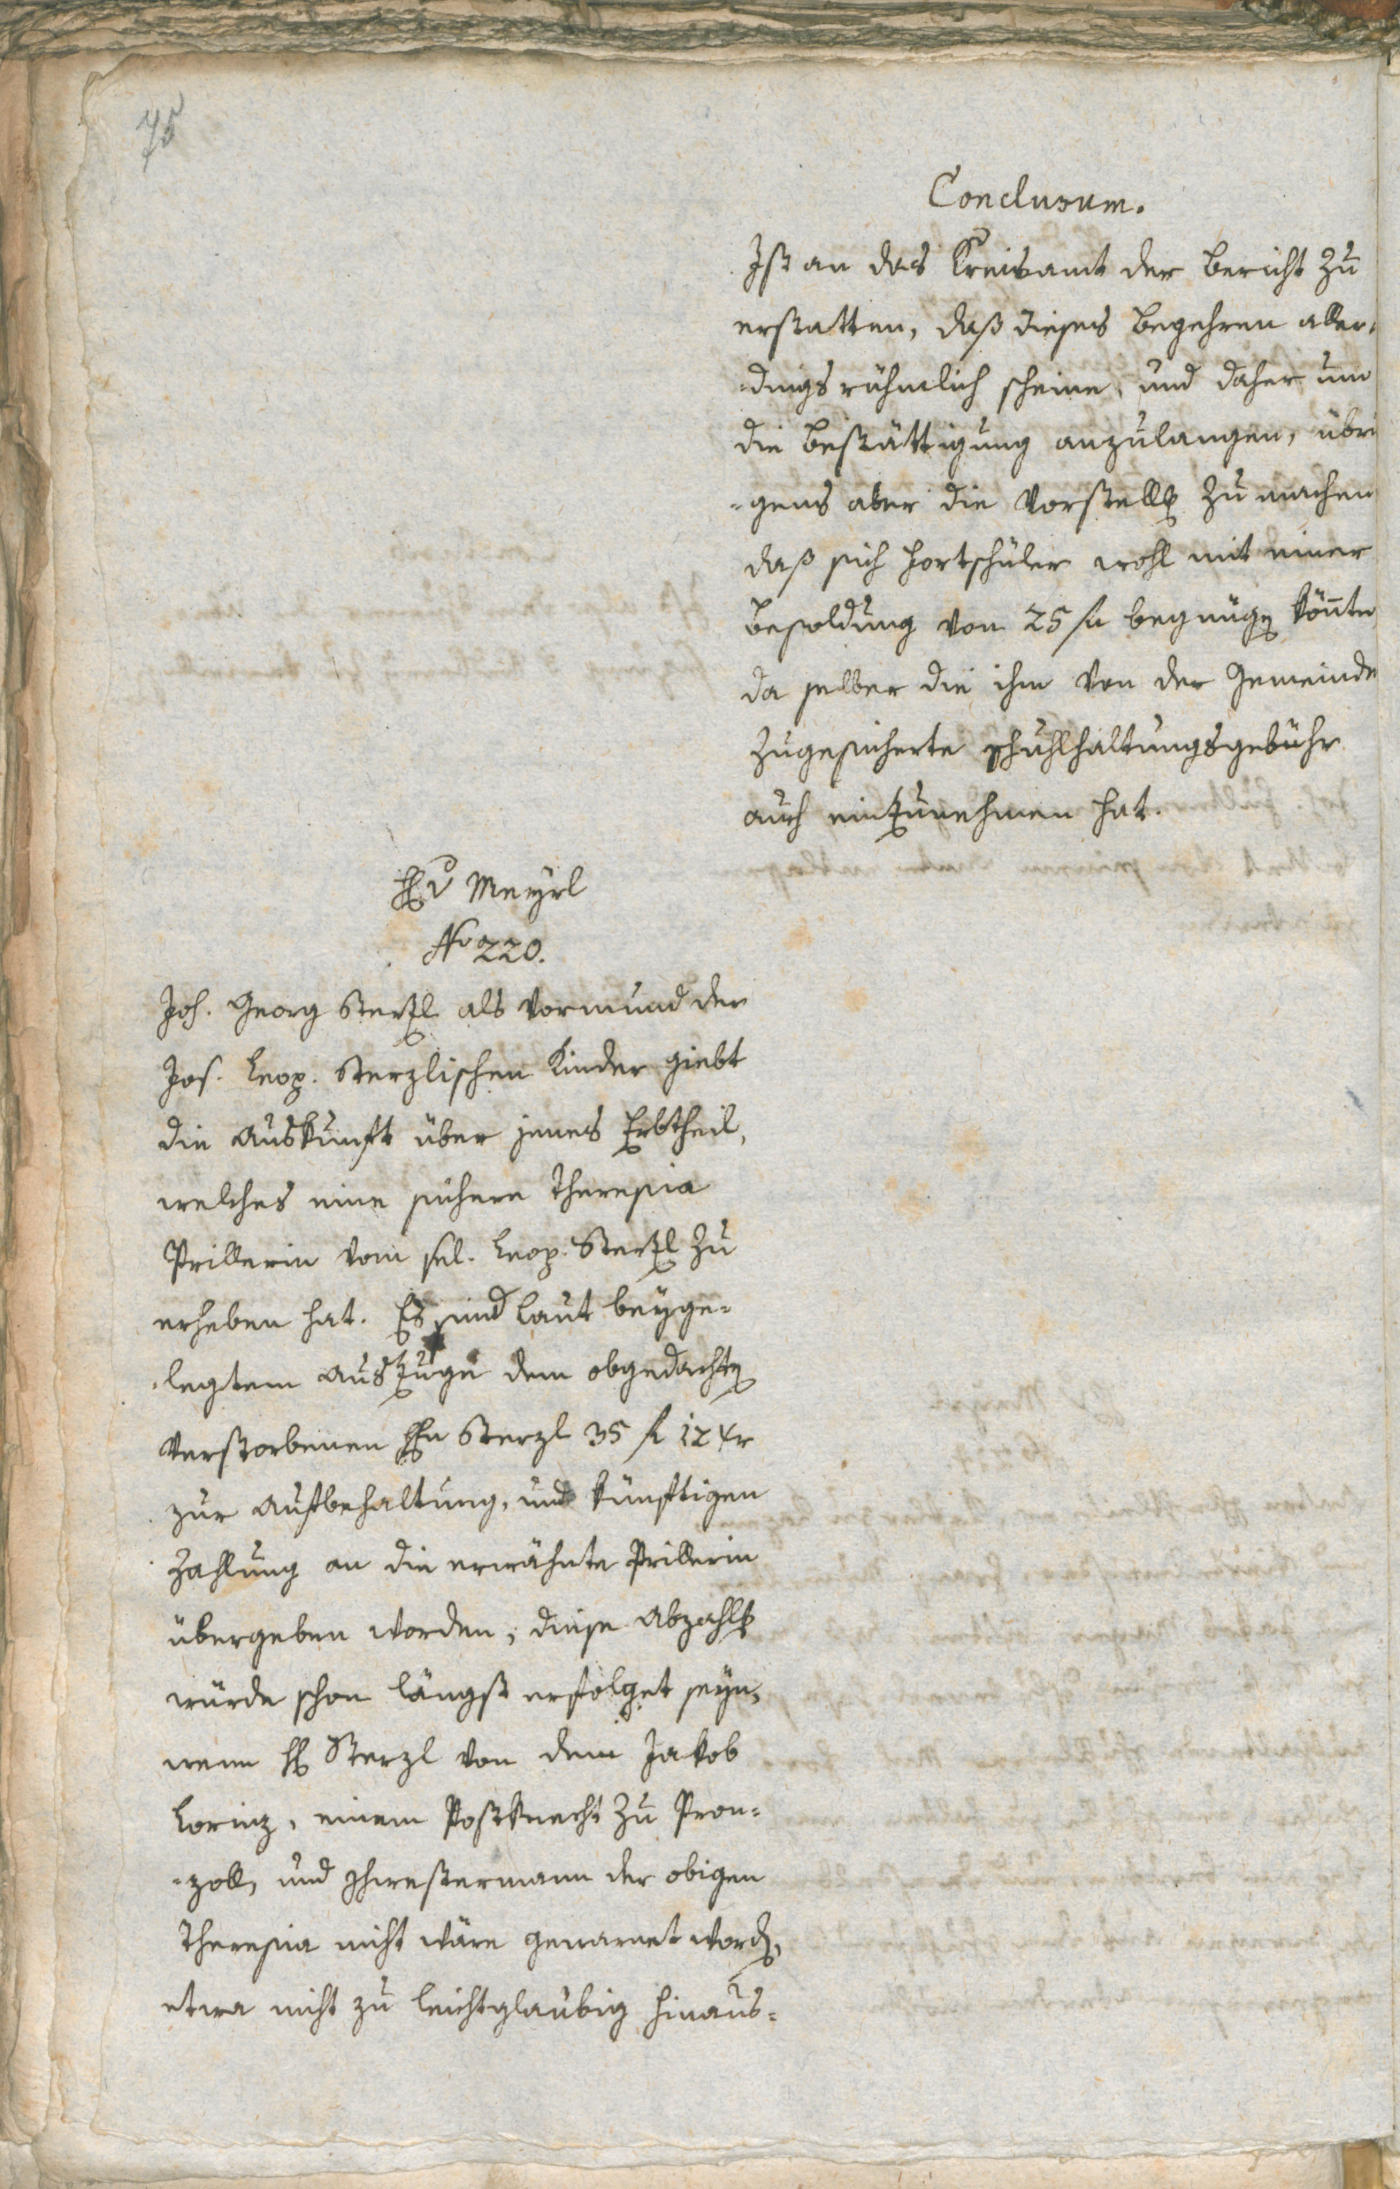 75
Conclusum.
Ist an das Kreisamt der Bericht zu
erstatten, daß dieses Begehren aller-
-dings rühmlich scheine, und daher um
die Bestättigung anzulangen, übri
-gens aber die Vorstellg zu machen
daß sich Hortschüler wohl mit einer
Besoldung von 25 fl begnügen könnte
da selber die ihm von der Gemeinde
zugesicherte Schuhlhaltungsgebühr
auch einzunehmen hat.
H v Meyrl
No 220.
Joh. Georg Sterzl als Vormund der
Jos. Leop. Sterzlischen Kinder giebt
die Auskunft über jenes Erbtheil,
welches eine sichere Theresia
Prillerin vom sel. Leop. Sterzl zu
erheben hat. Es sind laut beyge-
-legtem Auszuge dem obgedachten
verstorbenen Hn Sterzl 35 fl 12 xr
zur Aufbehaltung, und künftigen
Zahlung an die erwähnte Prillerin
übergeben worden, diese Abzahlg
würde schon längst erfolget seyn,
wenn H Sterzl von dem Jakob
Lorinz, einem Postknecht zu Pron-
-zoll, und Schwestermann der obigen
Theresia nicht wäre gewarnet worden,
etwa nicht zu leichtglaubig hinaus-